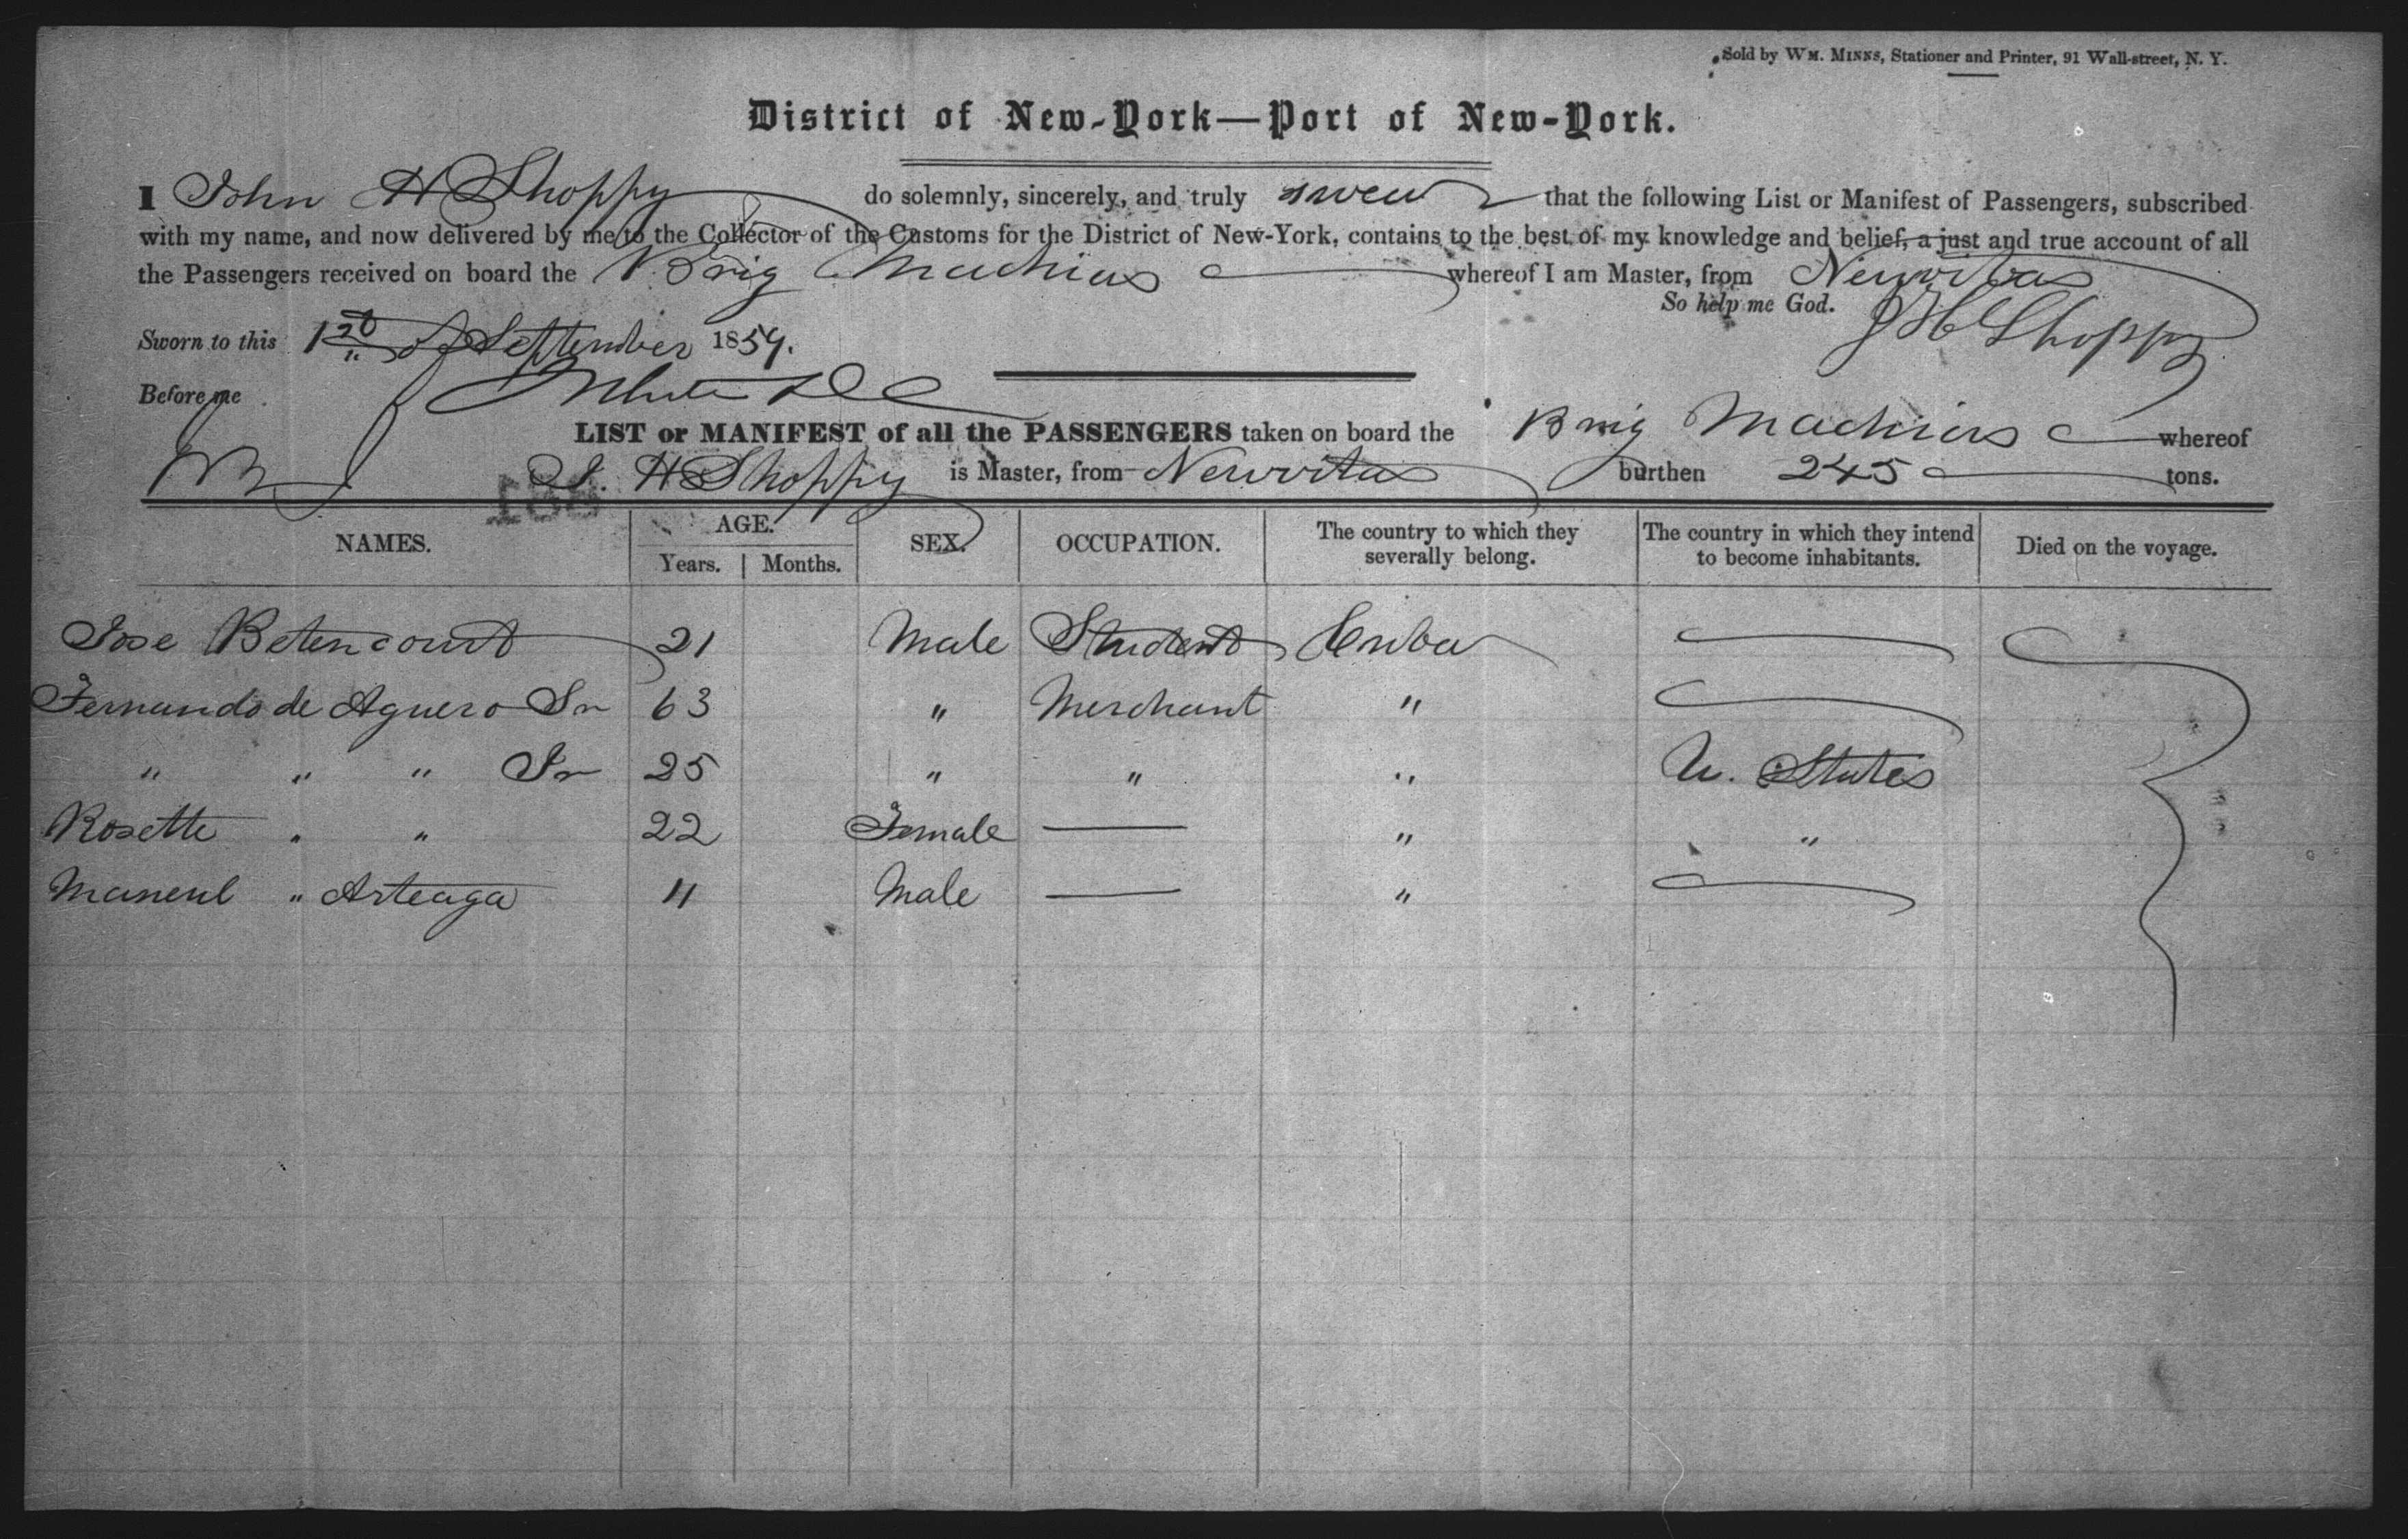 Sold by WM. MINNS, Stationer and Printer, 91 Wall-street, N. Y.
District of New-York—Port of New-York.
I John H Shoppy do solemnly, sincerely, and truly swear that the following List or Manifest of Passengers, subscribed
with my name, and now delivered by me to the Collector of the Customs for the District of New-York, contains to the best of my knowledge and belief, a just and true account of all
the Passengers received on board the Brig Machias whereof I am Master, from Neuvitas
So help me God. J H Shoppy
Sworn to this 1st of September 1859.
Before me
LIST or MANIFEST of all the PASSENGERS taken on board the Brig Machias whereof
J. H Shoppy is Master, from Neuvitas burthen 245 tons.
NAMES. AGE. Years. Months. SEX. OCCUPATION. The country to which they severally belong. The country in which they intend to become inhabitants. Died on the voyage.
Jose Betencourt 21 Male Student Cuba
Fernando de Aguero Sr 63 " Merchant "
" " " Jr 25 " " " U. States
Rosette " " 22 Female — " "
Maneul " Arteaga 11 Male — "